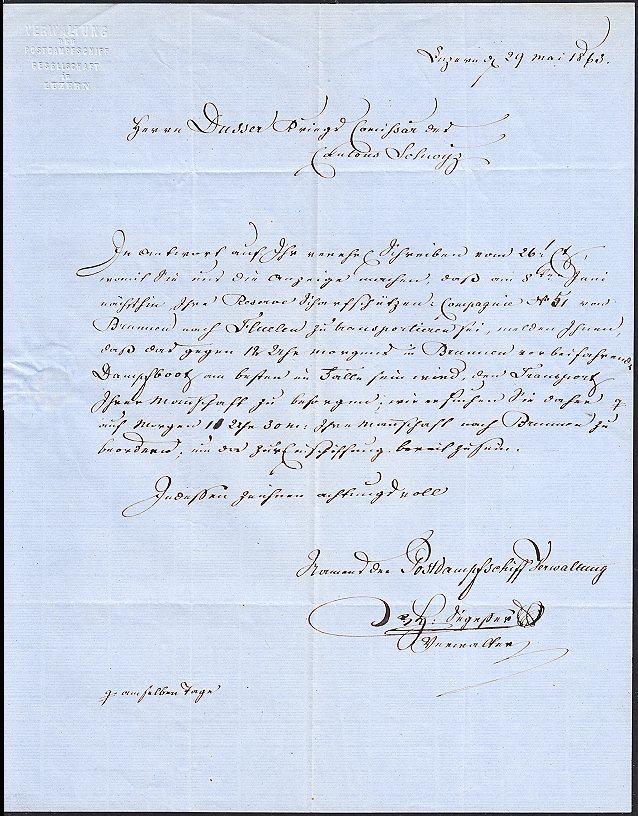 VERWALTUNG
DER
POSTDAMPFSCHIFF
GESELLSCHAFT
IN
LUZERN
Luzern d 29 Mai 1863.
Herrn Dusser Kriegs Comissär des
Cantons Schwyz
In Antwort auf Ihr verehrl Schreiben vom 26.
womit Sie uns die Anzeige machen, daß am 8ten Juni
nächsthin Ihre Scharfschützen-Compagnie No 51 von
Brunnen nach Fluelen zu transportieren sei, melden Ihnen,
daß das gegen 12 Uhr morgens in Brunnen vorbeifahrende
Dampfboot am besten im Falle sein wird, den Transport
Ihrer Mannschaft zu besorgen, wir ersuchen Sie daher
auf Morgen 11 Uhr 30 m: Ihre Mannschaft nach Brunnen zu
beordern, um da zur Einschiffung bereit zu sein.
Indessen zeichnen achtungsvoll
Namens der Postdampfschiff Verwaltung
H. Segesser
Verwalter
am selben Tage